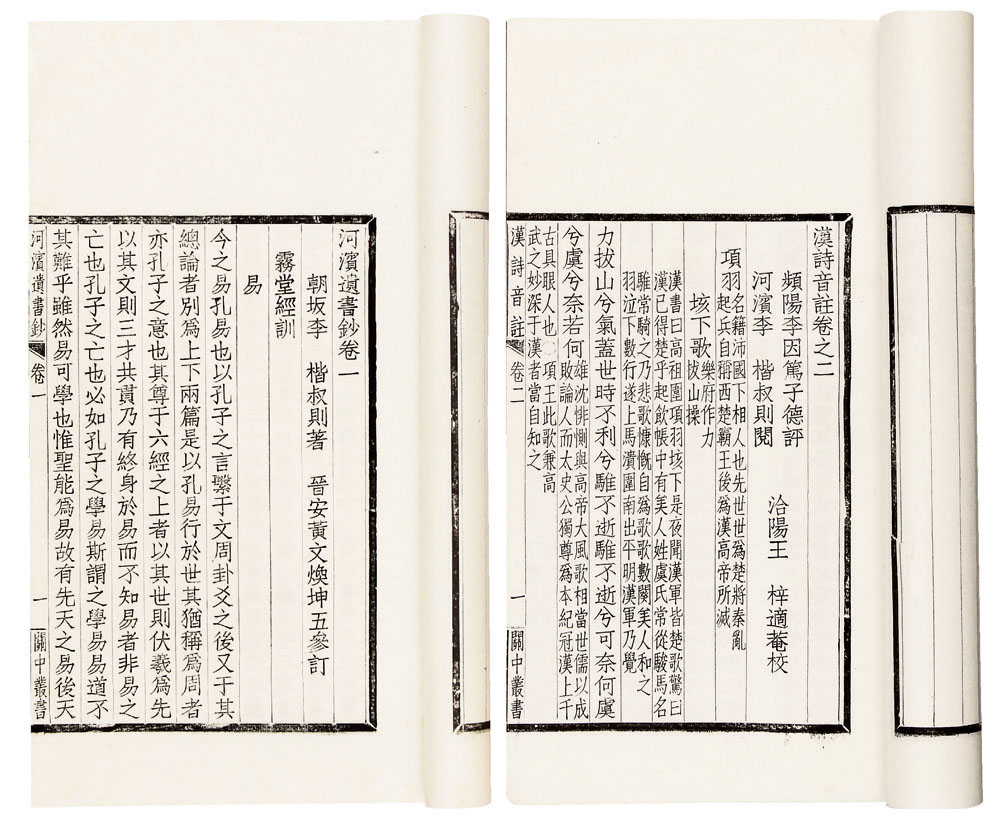 漢詩音註卷之二
頻陽李因篤子德評
河濱李 楷叔則閱 洽陽王 梓適菴校
項羽名籍沛國下相人也先世世爲楚將秦亂
起兵自稱西楚霸王後爲漢高帝所滅
垓下歌樂府作力
拔山操
漢書曰高祖圍項羽垓下是夜聞漢軍皆楚歌驚曰
漢已得楚乎起飲帳中有美人姓虞氏常從駿馬名
騅常騎之乃悲歌慷慨自爲歌歌數闋美人和之
羽泣下數行遂上馬潰圍南出平明漢軍乃覺
力拔山兮氣蓋世時不利兮騅不逝騅不逝兮可奈何虞
兮虞兮奈若何雄沈悱惻與高帝大風歌相當世儒以成
敗論人而太史公獨尊爲本紀冠漢上千
古具眼人也〇項王此歌兼高
武之妙深于漢者當自知之
漢詩音註 卷二 一 關中叢書
河濱遺書鈔卷一
朝坂李 楷叔則著 晉安黃文煥坤五參訂
霧堂經訓
易
今之易孔易也以孔子之言繫于文周卦爻之後又于其
總論者別爲上下兩篇是以孔易行於世其猶稱爲周者
亦孔子之意也其尊于六經之上者以其世則伏羲爲先
以其文則三才共貫乃有終身於易而不知易者非易之
亡也孔子之亡也必如孔子之學易斯謂之學易易道不
其難乎雖然易可學也惟聖能爲易故有先天之易後天
河濱遺書鈔 卷一 一 關中叢書